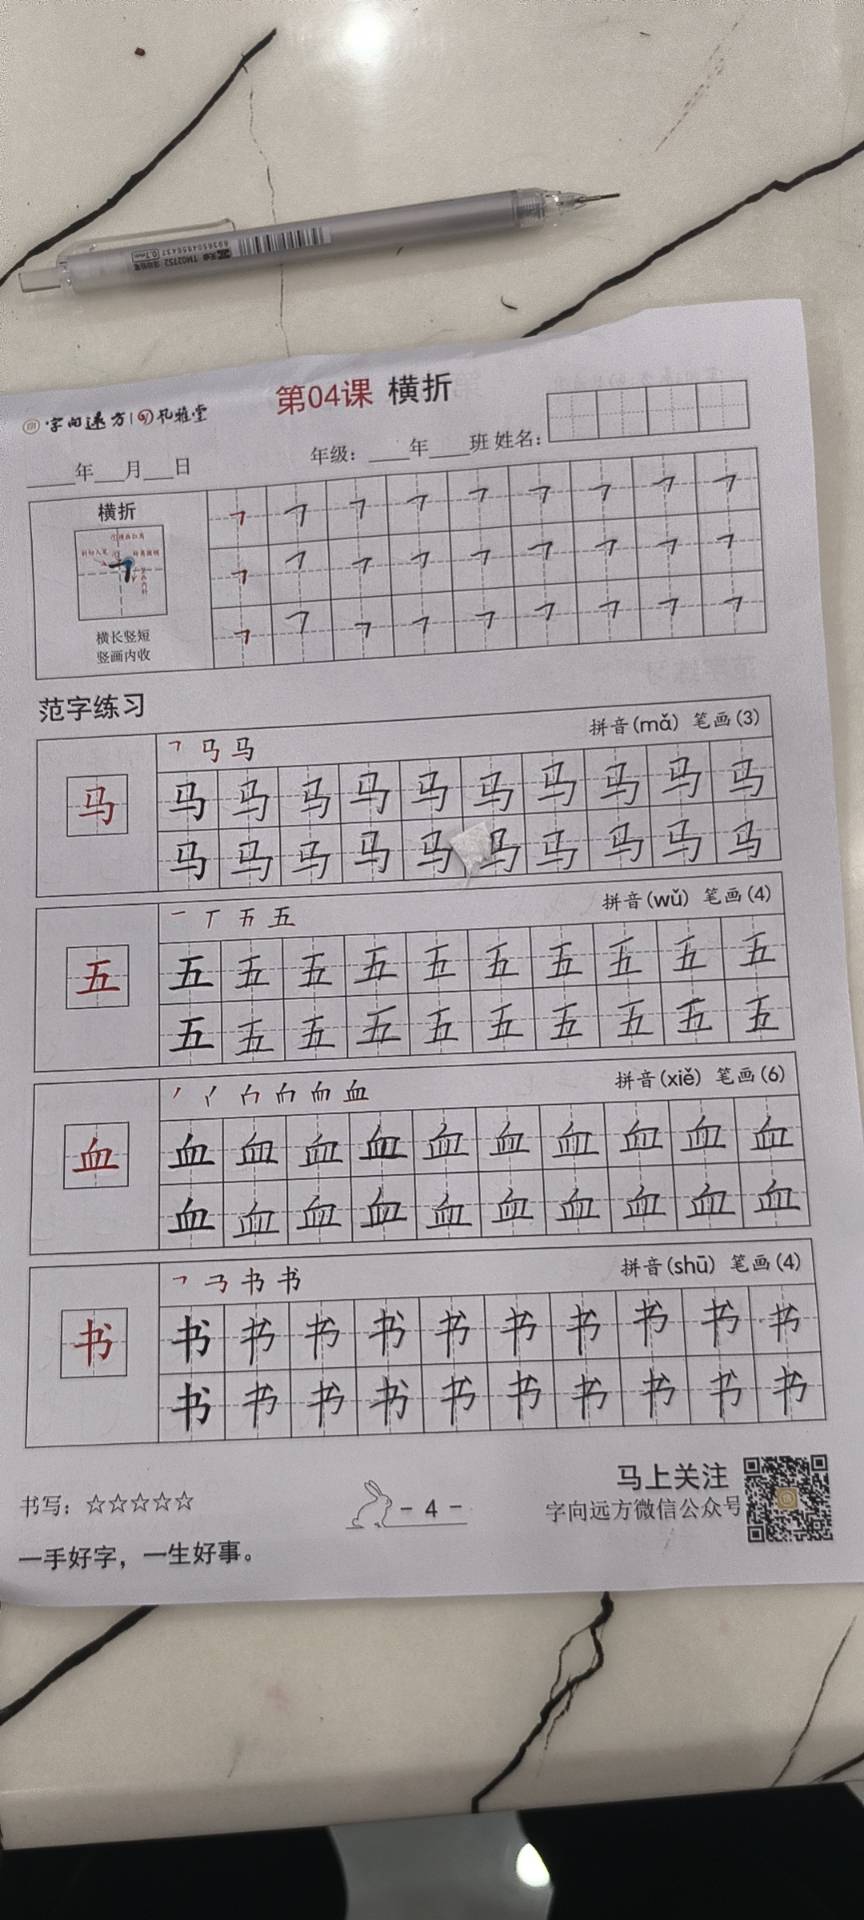 字向远方 | 孔雅堂
第04课 横折
____年___月___日
年级：____年____班 姓名：
横折
横长竖短
竖画内收
范字练习
拼音(mǎ) 笔画(3)
马
马 马 马 马 马 马 马 马 马 马
马 马 马 马 马 马 马 马 马 马
拼音(wǔ) 笔画(4)
五
五 五 五 五 五 五 五 五 五 五
五 五 五 五 五 五 五 五 五 五
拼音(xiě) 笔画(6)
血
血 血 血 血 血 血 血 血 血 血
血 血 血 血 血 血 血 血 血 血
拼音(shū) 笔画(4)
书
书 书 书 书 书 书 书 书 书 书
书 书 书 书 书 书 书 书 书 书
书写：☆☆☆☆☆
- 4 -
马上关注
字向远方微信公众号
一手好字，一生好事。